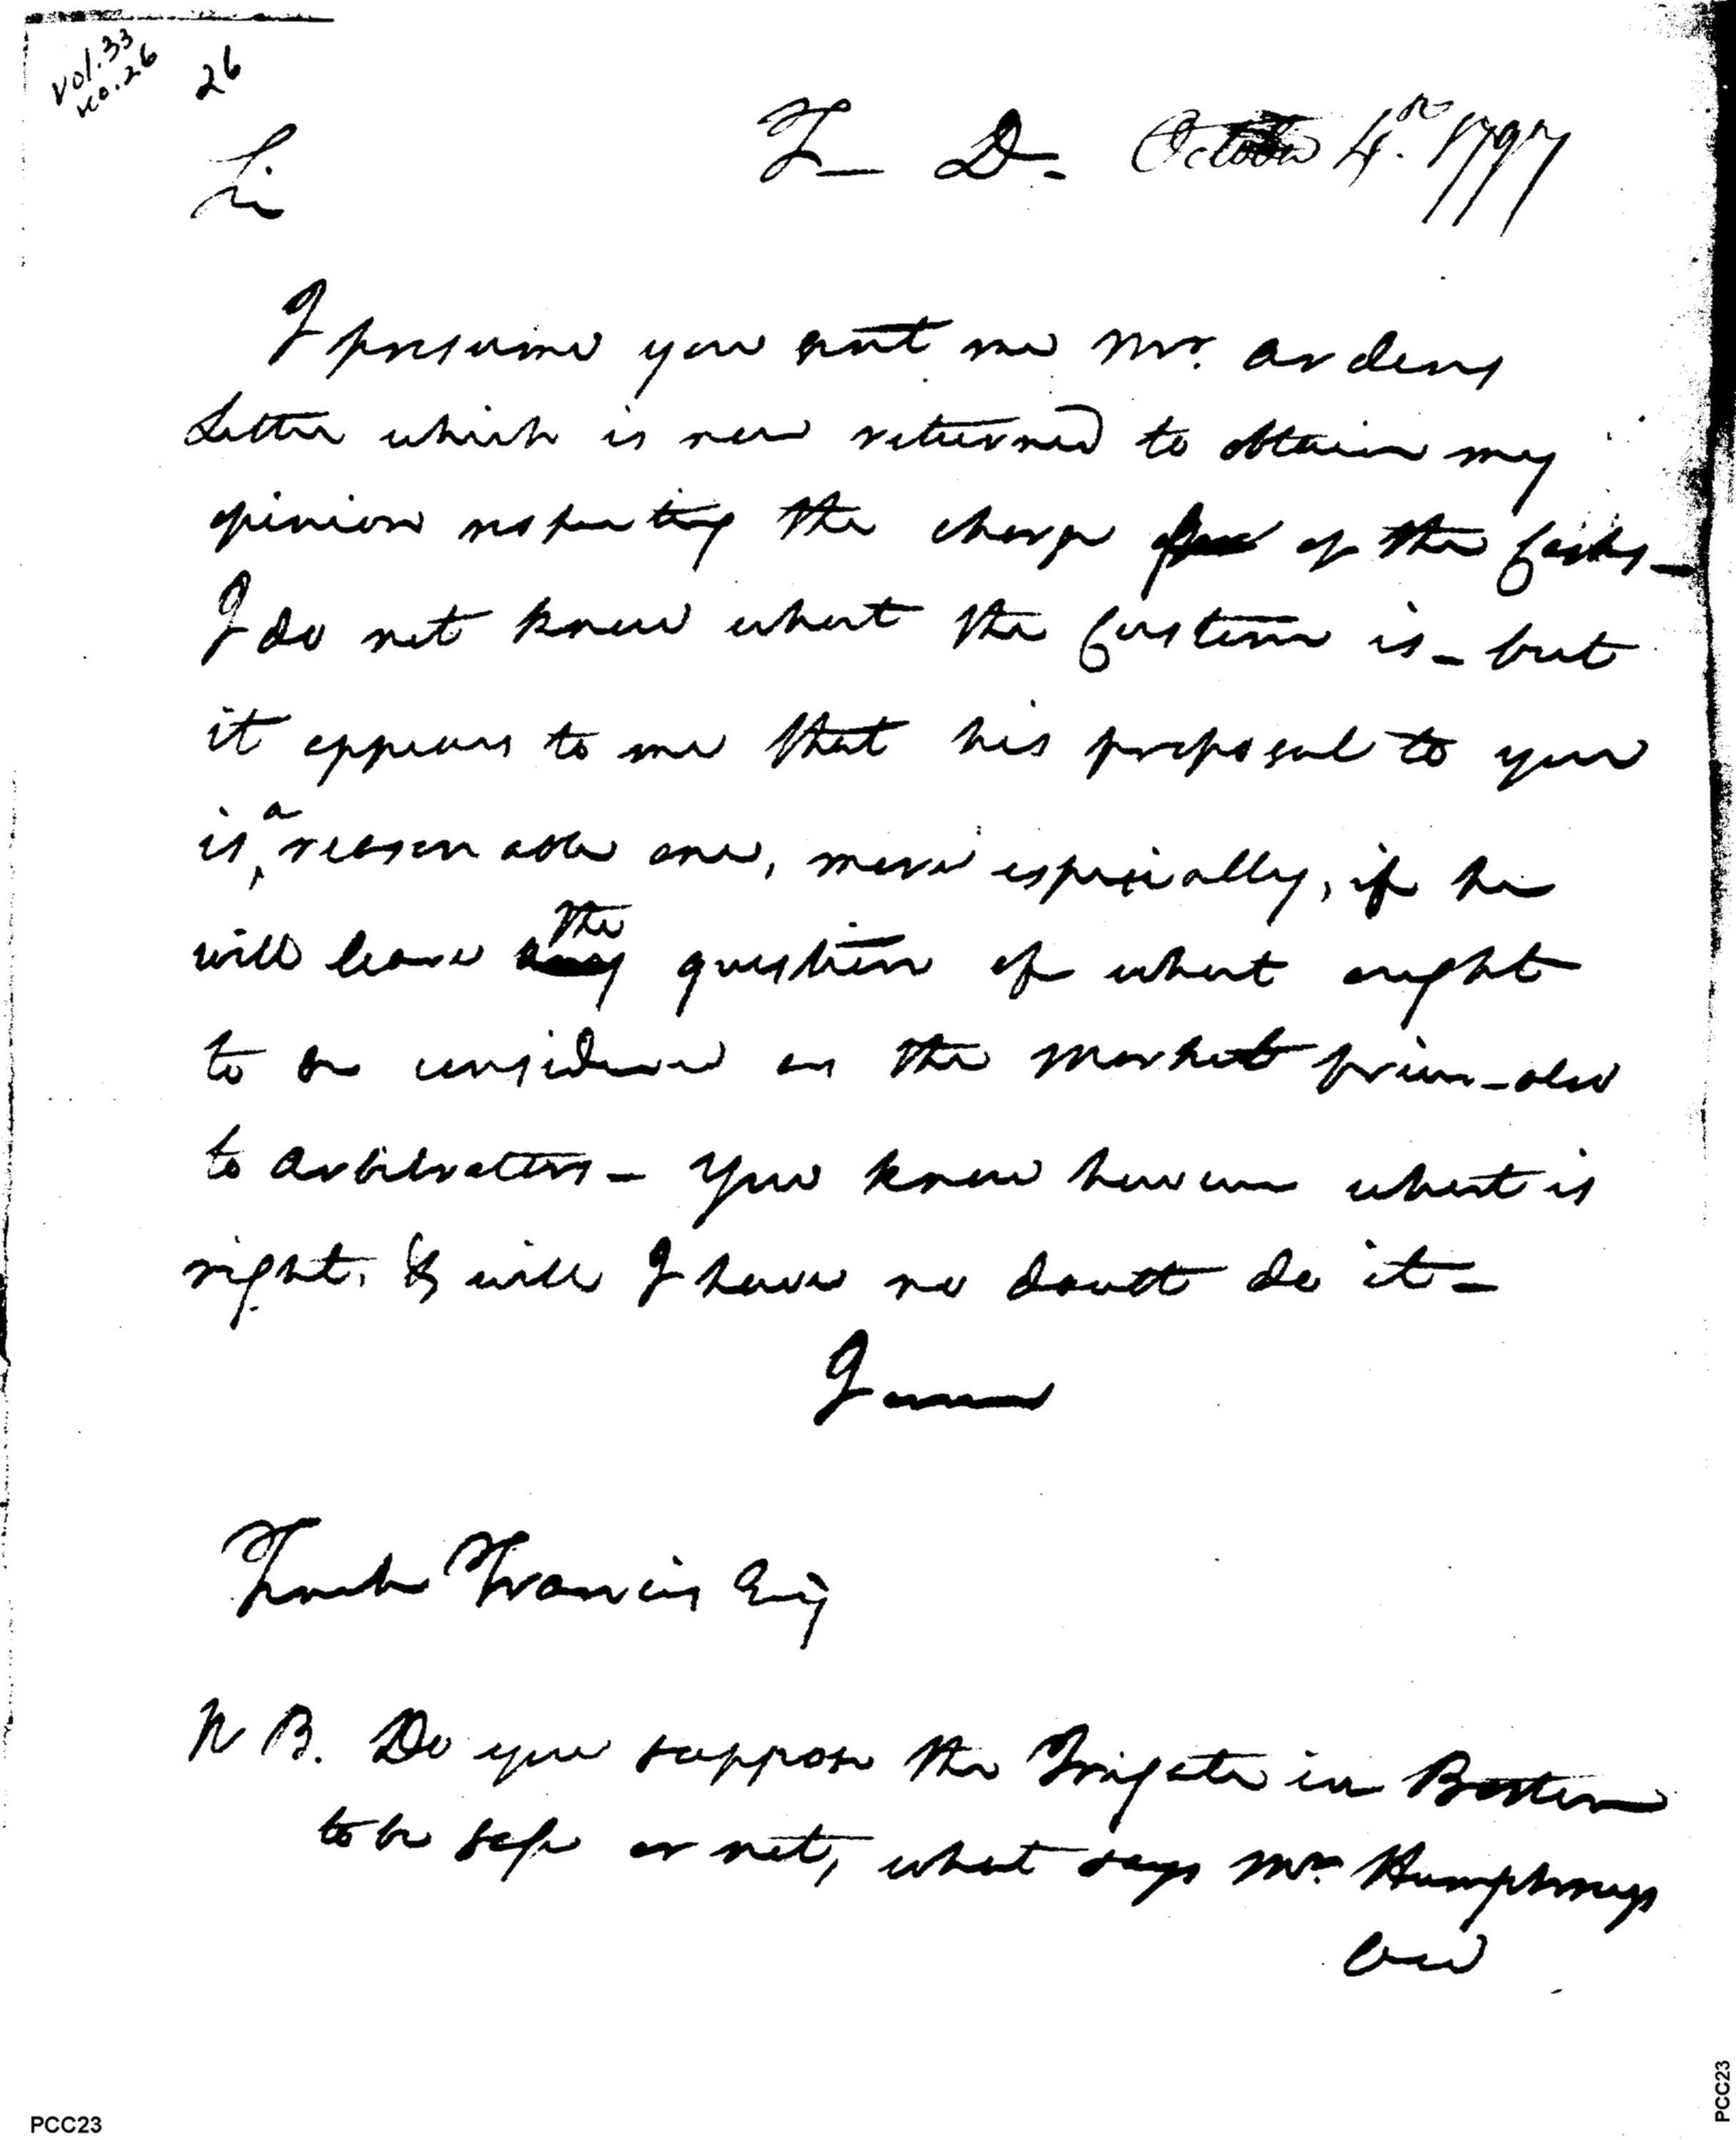 Vol. 33
No. 26
26
T— D— October 4th. 1797
Sir
I presume you sent me Mr. Ardens
Letter which is now returned to obtain my
opinion respecting the charge of the Casks—
I do not know what the Custom is— but
it appears to me that his proposal to you
is a reasonable one, more especially, if he
will leave the question of what ought
to be considered as the market price— also
to arbitrators— You know however what is
right, & will I have no doubt do it—
I am
Tench Francis Esq
N B. Do you suppose the Frigate in Boston
to be safe or not, what says Mr. Humphreys
OW
PCC23
PCC23